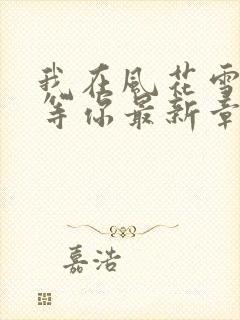 我在風花雪
等你最新章
嘉浩